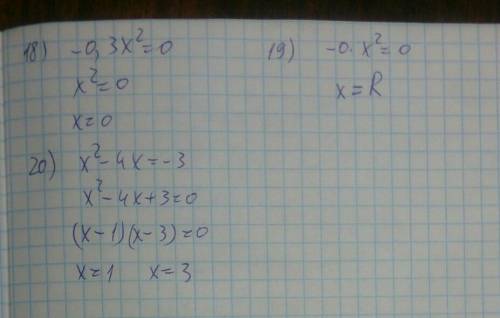 18) -0,3x²=0
x²=0
x=0
19) -0·x²=0
x=R
20) x²-4x=-3
x²-4x+3=0
(x-1)(x-3)=0
x=1 x=3